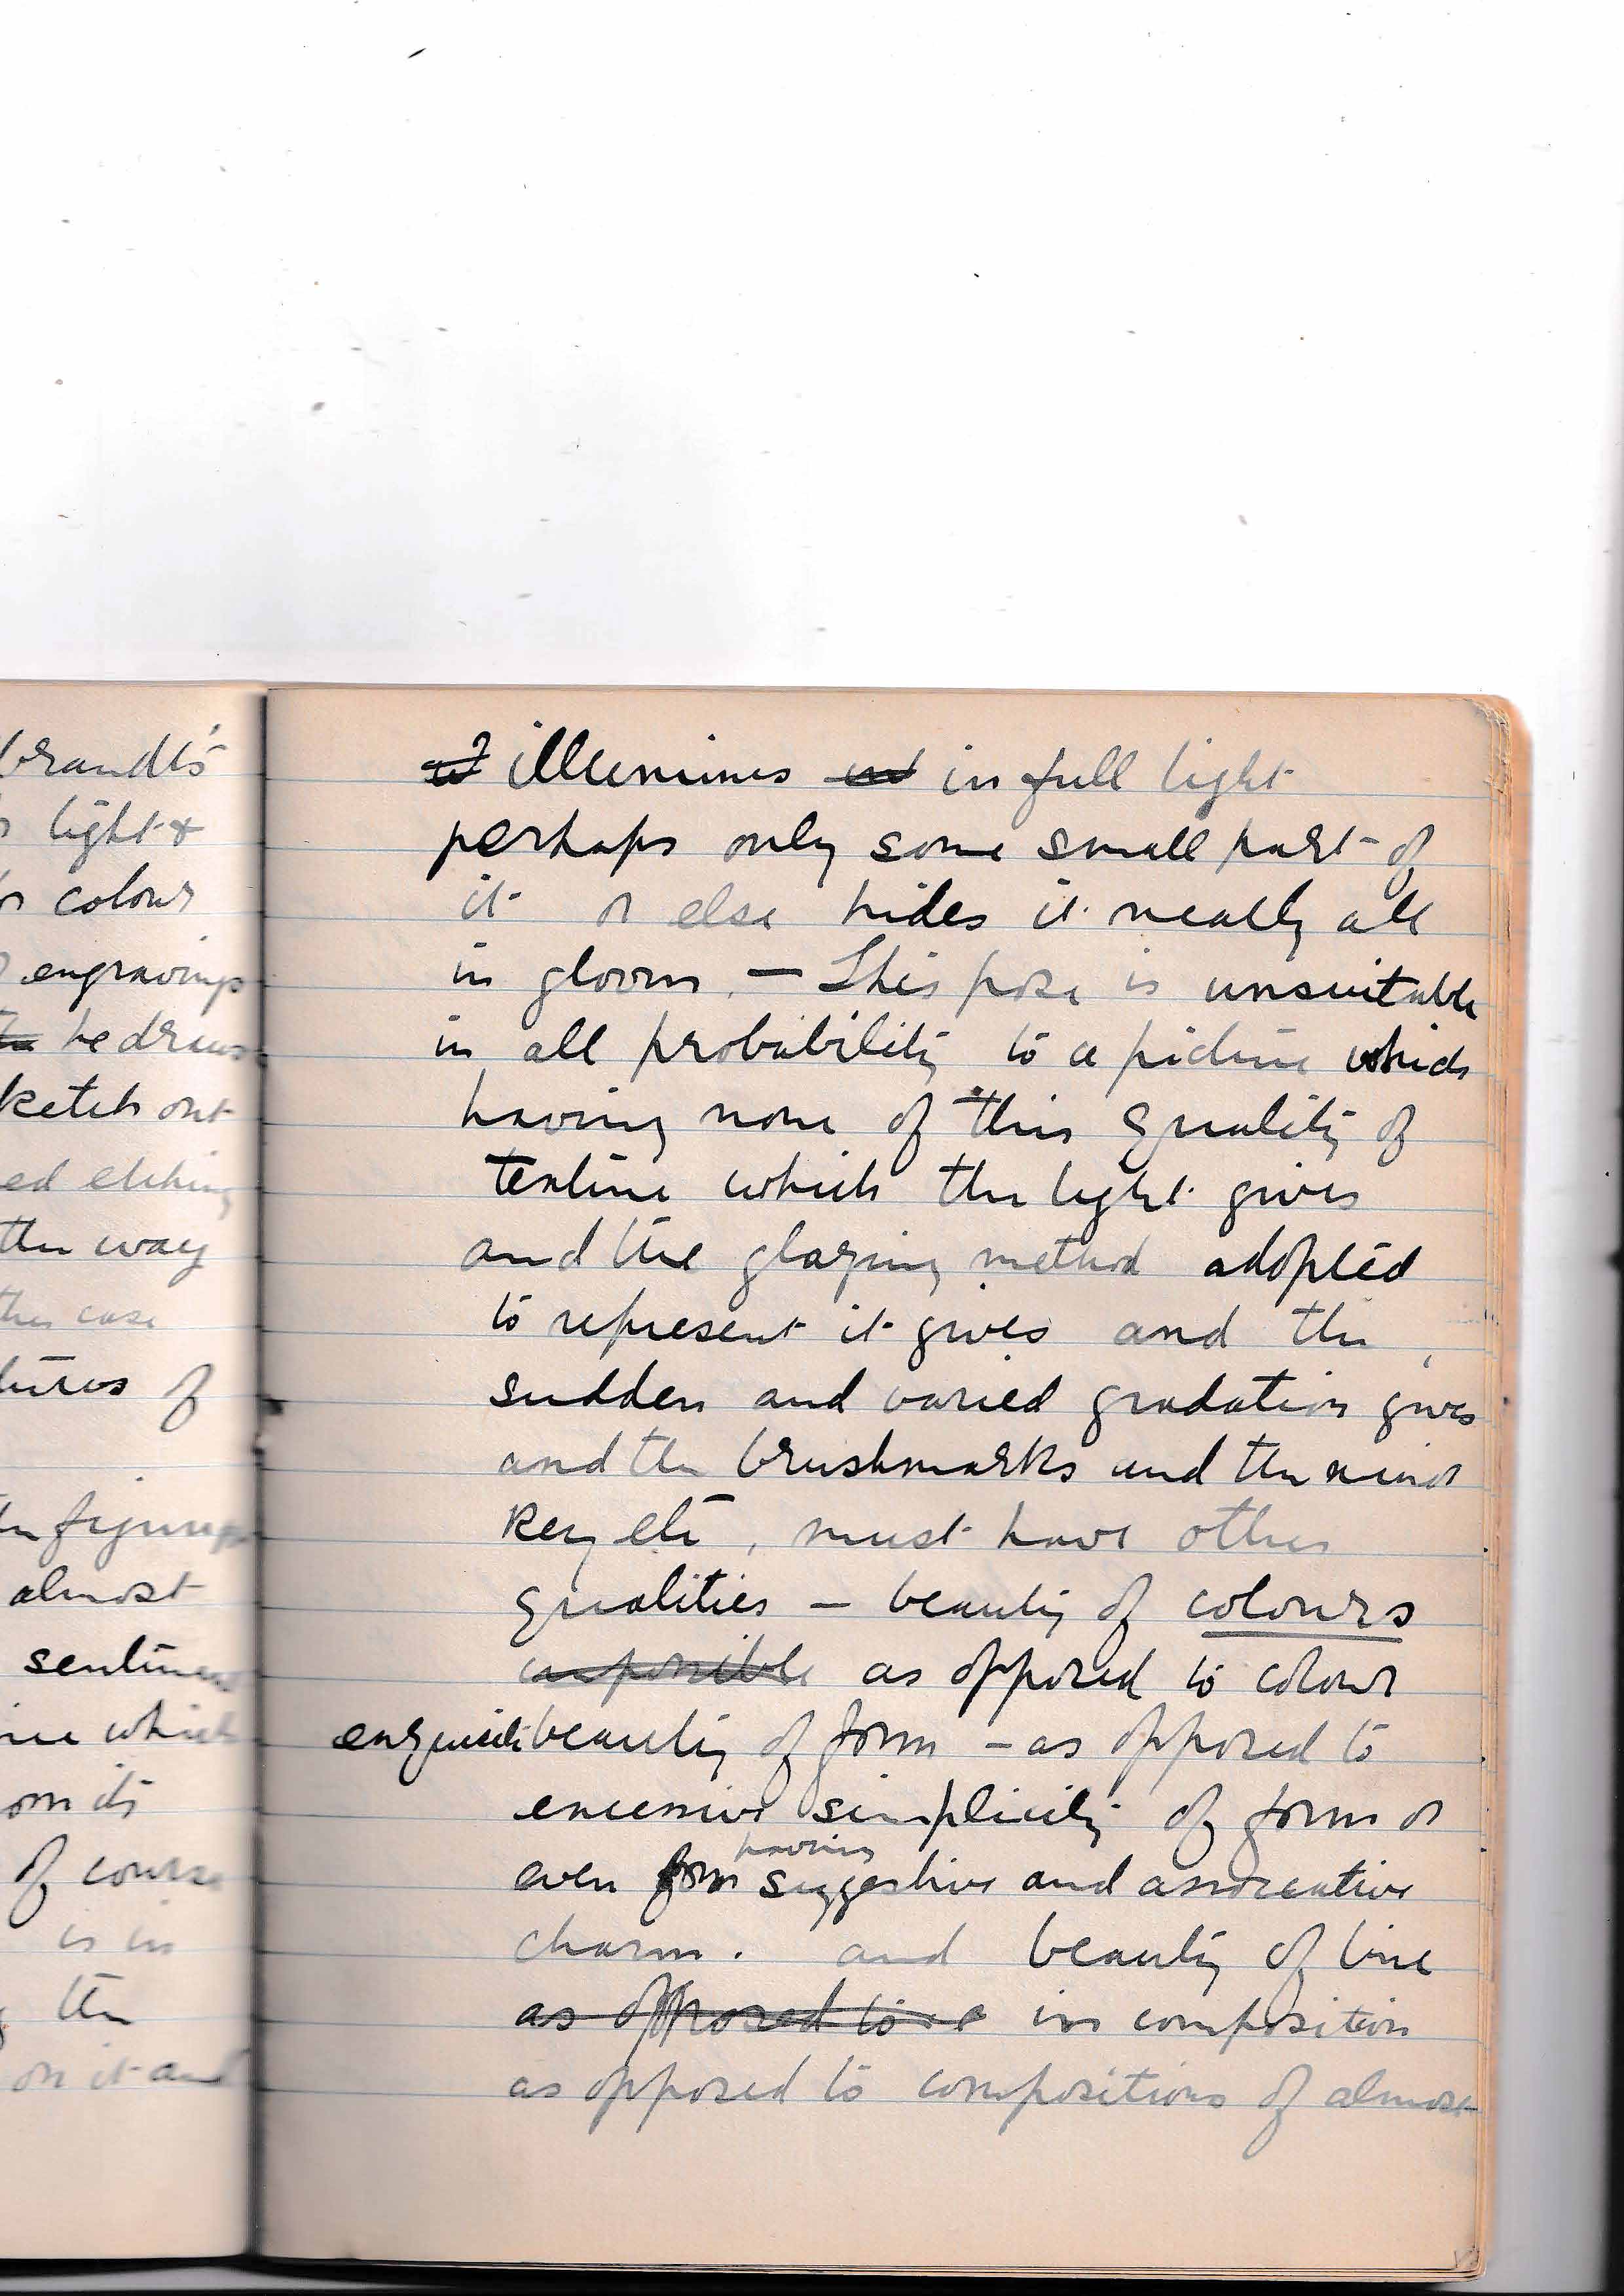 brandt's
light &
colour
engravings
he draws
ketch out
ed etching
the way
the case
tures of
figures
almost
sentiment
which
om its
of course
is in
the
on it and
it illumines and in full light
perhaps only some small part of
it or else hides it neally all
in gloom. — This pose is unsuitable
in all probability to a picture which
having none of this quality of
texture which the light gives
and the glazing method adopted
to represent it gives and the
sudden and varied gradation gives
and the brushmarks and the minor
Key etc, must have other
qualities — beauty of colours
impossible as opposed to colour
exquisite beauty of form — as opposed to
excessive simplicity of form or
even form having suggestive and associative
charm. and beauty of line
as opposed to in composition
as opposed to compositions of almost